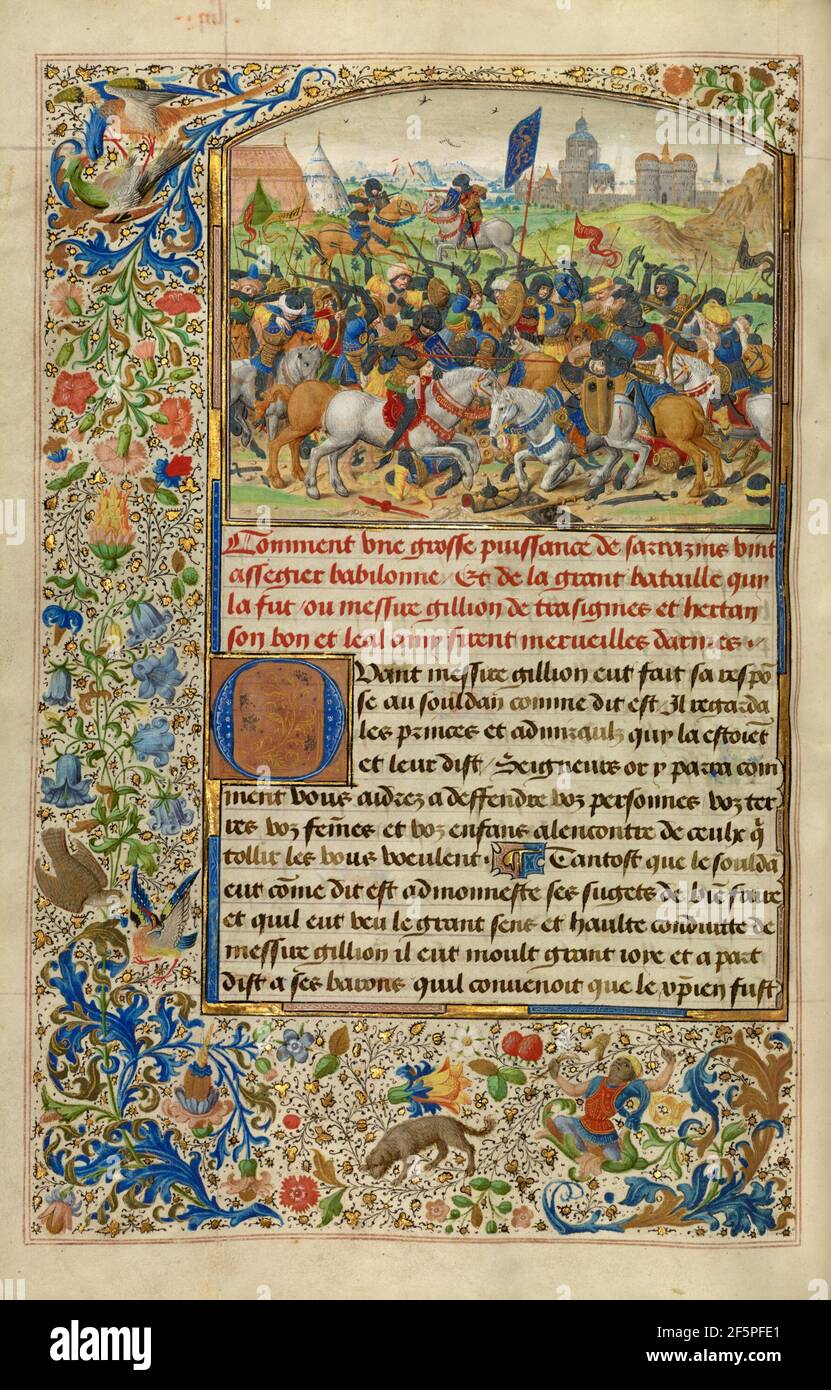 Comment vne grosse puissance de sarrazins vint
assegier babilonne / Et de la grant bataille quy
la fut / ou messire gillion de trasignies et hertan
son bon et leal amy firent merueilles darmes
Quant messire gillion eut fait sa respõ
se au souldan comme dit est / Il regarda
les princes et admiraulz quy la estoiẽt
et leur dist / Seigneurs or y parra com
ment vous aidrez a deffendre voz personnes voz ter
res voz fem̃es et voz enfans alencontre de ceulx q̃
tollir les vous veulent Tantost que le souldã
eut cõme dit est admonneste ses sugets de biẽ faire
et quil eut veu le grant sens et haulte conduitte de
messire gillion il eut moult grant ioye et a part
dist a ses barons quil conuenoit que le xp̃ien fust
alamy
www.alamy.com
Image ID: 2F5PFE1